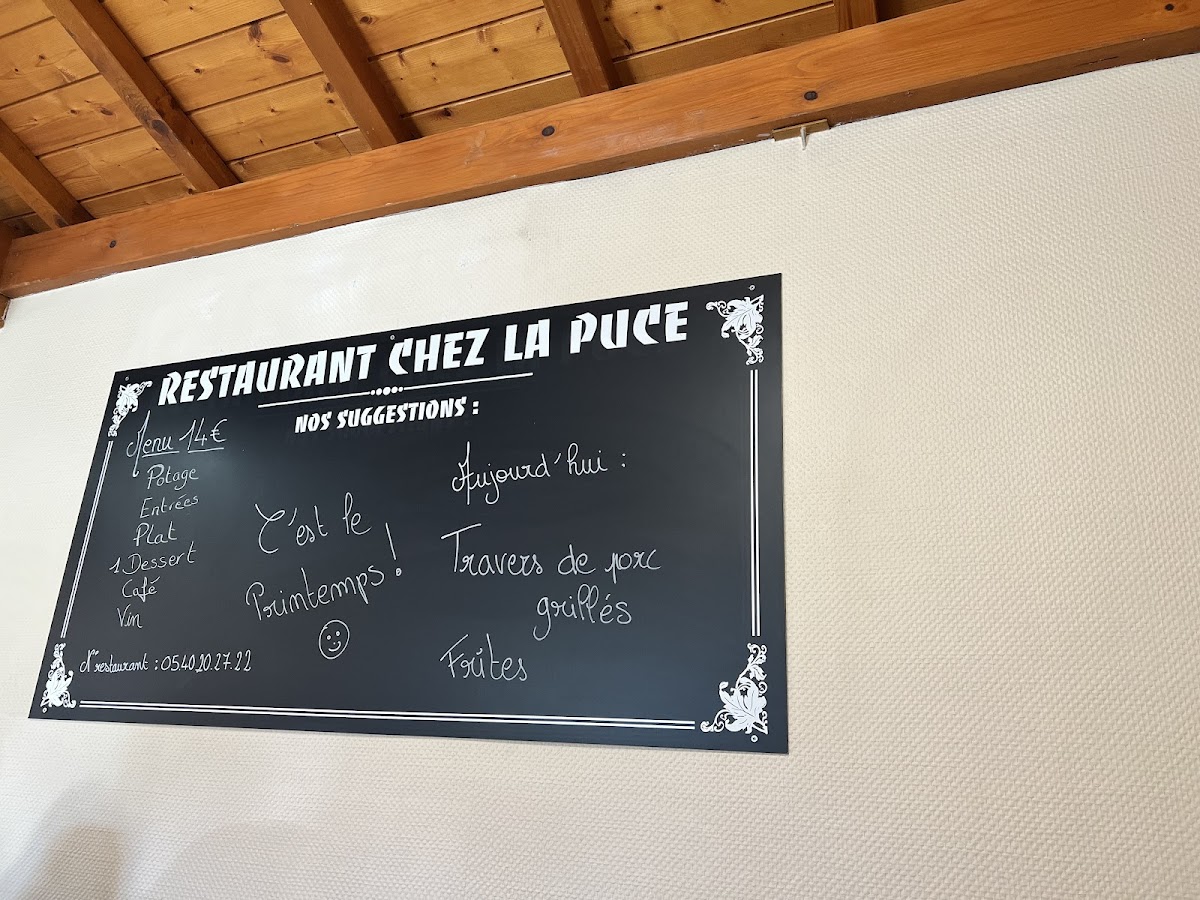 RESTAURANT CHEZ LA PUCE
NOS SUGGESTIONS :
Menu 14€
Potage
Entrées
Plat
1 Dessert
Café
Vin
N° restaurant : 05.40.20.27.22
C'est le
Printemps !
Aujourd'hui :
Travers de porc
grillés
Frites